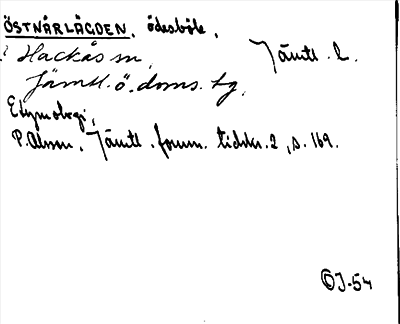 ÖSTNÅRLÄGDEN. ödesböle.
i Hackås sn, Jämtl. l.
Jämtl. ö. doms. tg.
Etymologi,
P. Olsson. Jämtl. fornm. tidskr. 2, s. 169.
ÖJ-54